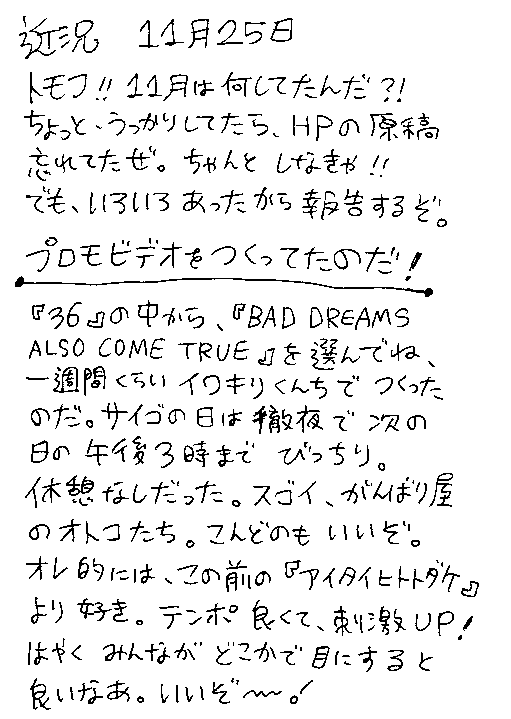 近況 11月25日
トモフ!! 11月は何してたんだ?!
ちょっと、うっかりしてたら、HPの原稿
忘れてたぜ。ちゃんと しなきゃ!!
でも、いろいろ あったから 報告するぞ。
プロモビデオをつくってたのだ!
『36』の中から、『BAD DREAMS
ALSO COME TRUE』を選んでね、
一週間くらい イワキリくんちで つくった
のだ。サイゴの日は 徹夜で 次の
日の 午後3時まで びっちり。
休憩なしだった。スゴイ、がんばり屋
のオトコたち。こんどのも いいぞ。
オレ的には、この前の『アイタイヒトトダケ』
より 好き。テンポ 良くて、刺激UP!
はやく みんなが どこかで 目にすると
良いなあ。いいぞ〜。!